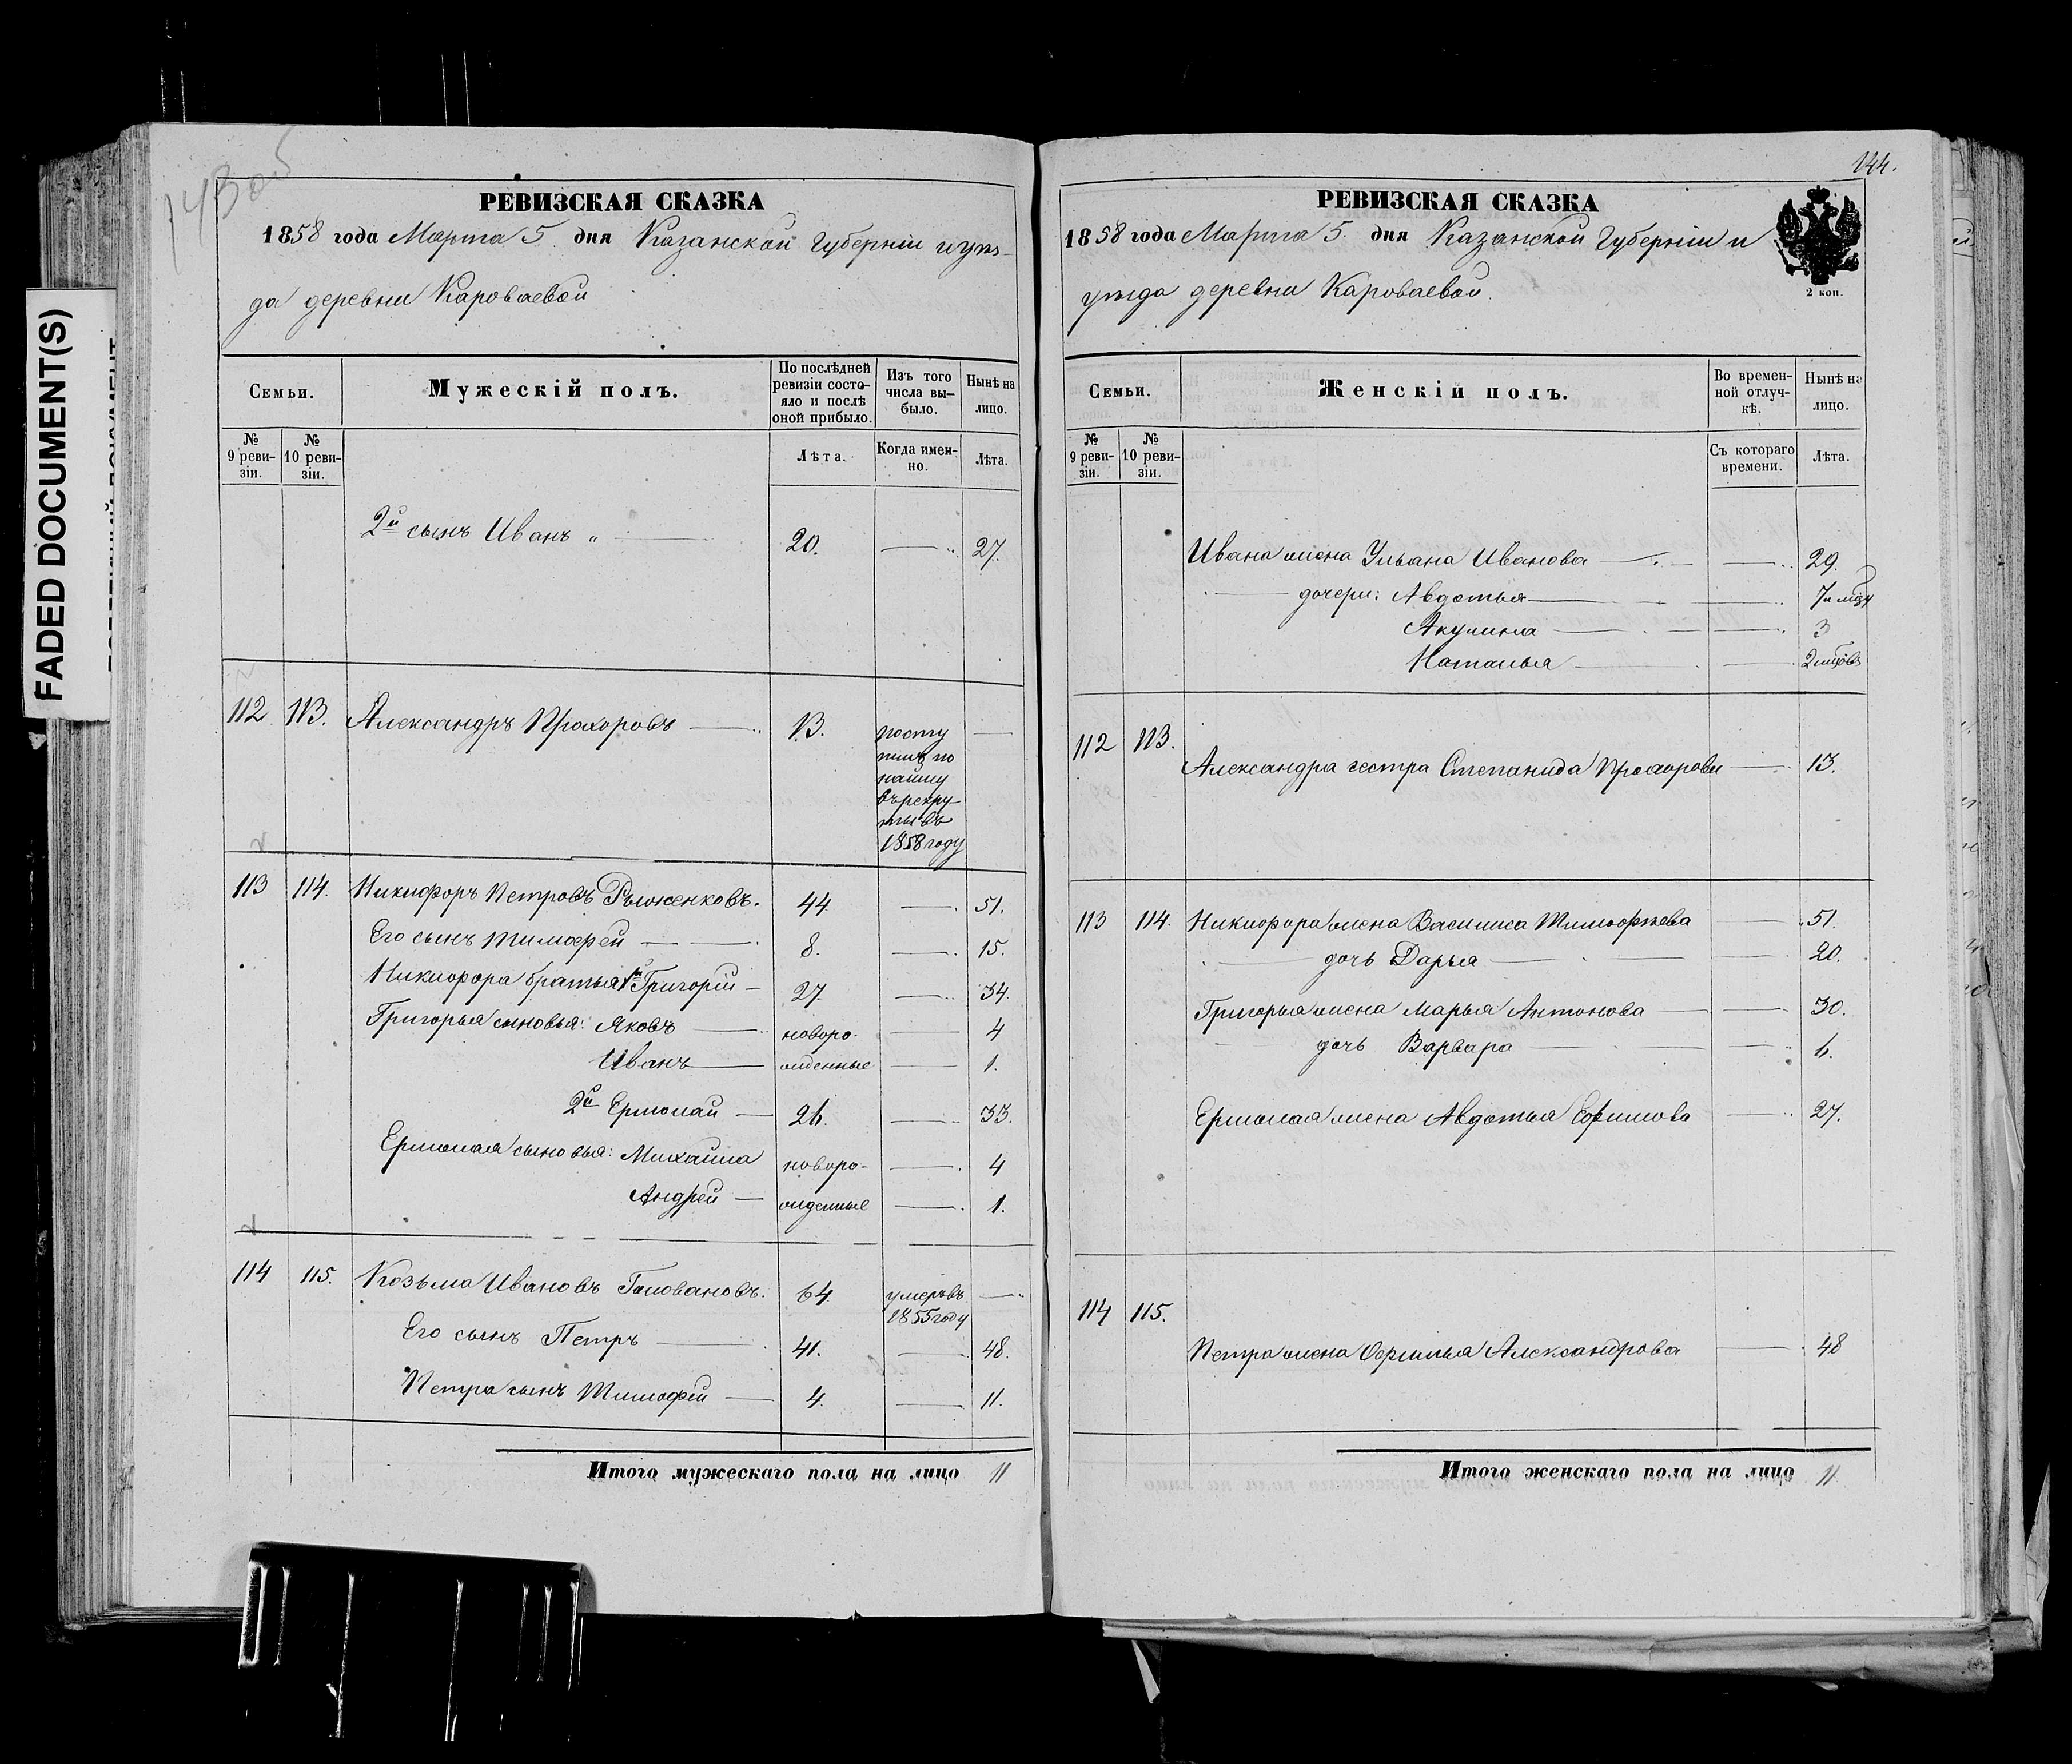 FADED DOCUMENT(S)
143об
РЕВИЗСКАЯ СКАЗКА
1858 года Марта 5. дня Казанской Губерніи и уѣз-
да деревни Короваевой
Семьи.
Мужескій полъ.
По послѣдней ревизіи состо-яло и послѣ оной прибыло.
Изъ того числа вы-было.
Нынѣ на лицо.
№ 9 реви-зіи.
№ 10 реви-зіи.
Лѣта.
Когда имен-но.
Лѣта.
2й сынъ Иванъ " 20. 27.
112 113. Александръ Прохоровъ 13. посту
пилъ по
найму
въ рекру
ты въ
1858 году
113 114. Никифоръ Петровъ Рыженковъ. 44 51.
Его сынъ Тимофей 8. 15.
Никифора братья 1й Григорій 27 34.
Григорья сыновья: Яковъ новоро- 4
Иванъ жденные 1.
2й Ермолай 26. 33.
Ермолая сыновья: Михаила новоро- 4
Андрей жденные 1.
114 115. Козьма Ивановъ Головановъ. 64. умеръ въ
1855 году
Его сынъ Петръ 41. 48.
Петра сынъ Тимофей 4. 11.
Итого мужескаго пола на лицо 11
144.
РЕВИЗСКАЯ СКАЗКА
1858 года Марта 5. дня Казанской Губерніи и
уѣзда деревни Короваевой.
2 коп.
Семьи.
Женскій полъ.
Во времен-ной отлуч-кѣ.
Нынѣ на лицо.
№ 9 реви-зіи.
№ 10 реви-зіи.
Съ котораго времени.
Лѣта.
Ивана жена Ульяна Иванова 29.
дочери: Авдотья 7
Акулина 3
Наталья 2 мѣсяцовъ
112 113.
Александра сестра Степанида Прохорова 13.
113 114. Никифора жена Василиса Тимофѣева 51.
дочь Дарья 20.
Григорья жена Марья Антонова 30.
дочь Варвара 6.
Ермолая жена Авдотья Ефимова 27.
114 115.
Петра жена Офимья Александрова 48
Итого женскаго пола на лицо 11